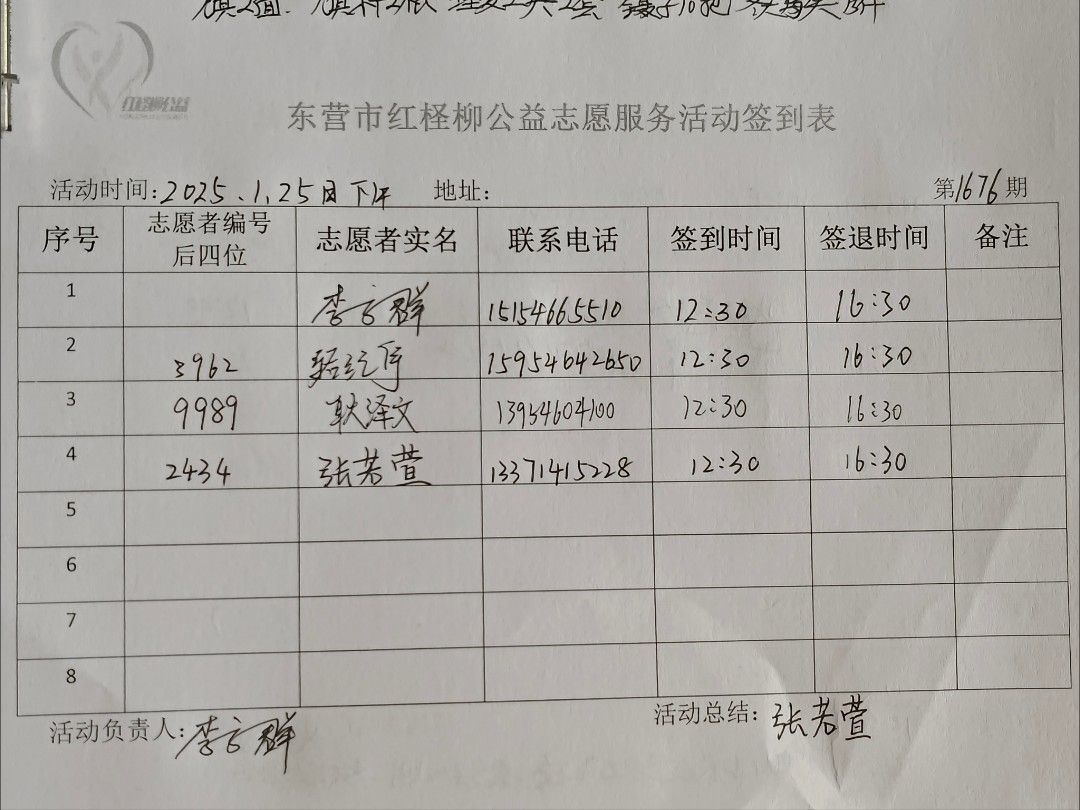 旗2面. 旗杆2根
红柽柳公益
东营市红柽柳公益志愿服务活动签到表
活动时间:2025.1.25日下午 地址: 第1676期
序号 志愿者编号后四位 志愿者实名 联系电话 签到时间 签退时间 备注
1 李方群 15154665510 12:30 16:30
2 3962 15954642650 12:30 16:30
3 9989 耿泽文 13954604100 12:30 16:30
4 2434 张若萱 13371415228 12:30 16:30
5
6
7
8
活动负责人:李方群 活动总结:张若萱